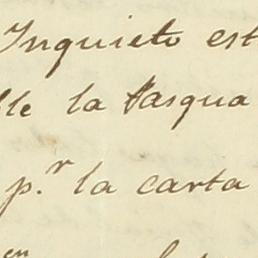 Inquieto est
lle la Pasqua
p.r la carta